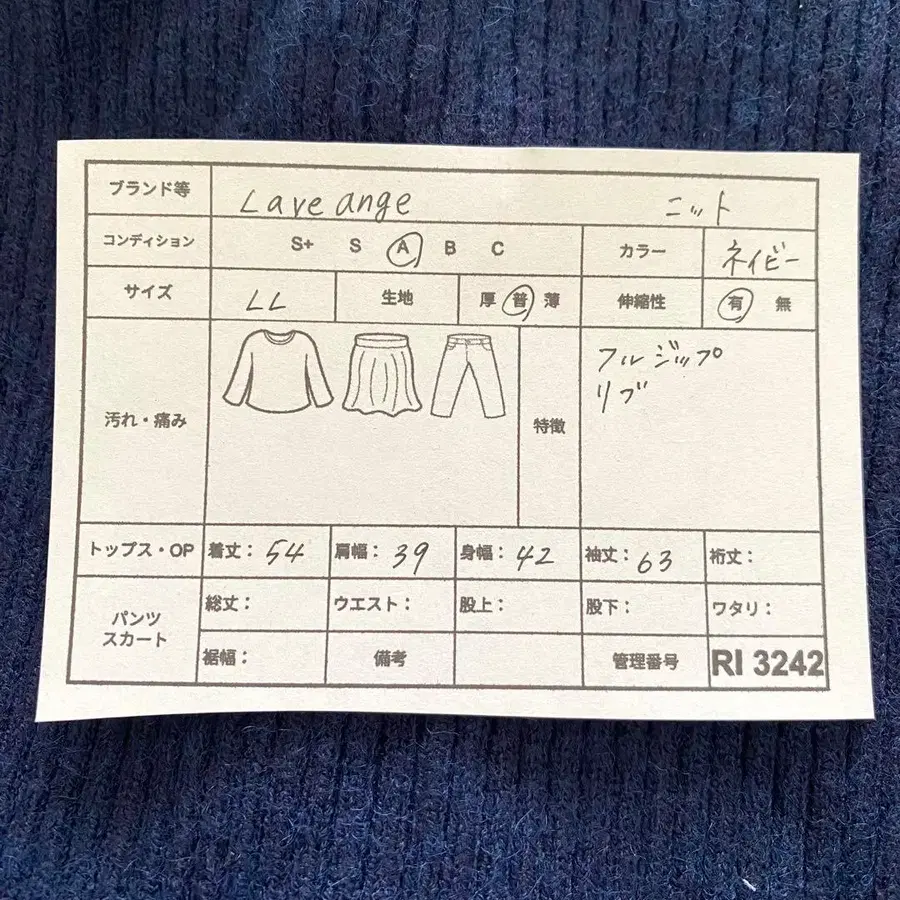 ブランド等 Lave ange ニット
コンディション S+ S A B C カラー ネイビー
サイズ LL 生地 厚 普 薄 伸縮性 有 無
汚れ・痛み 特徴 フルジップ
リブ
トップス・OP 着丈： 54 肩幅： 39 身幅： 42 袖丈： 63 裄丈：
パンツ
スカート
総丈： ウエスト： 股上： 股下： ワタリ：
裾幅： 備考 管理番号 RI 3242